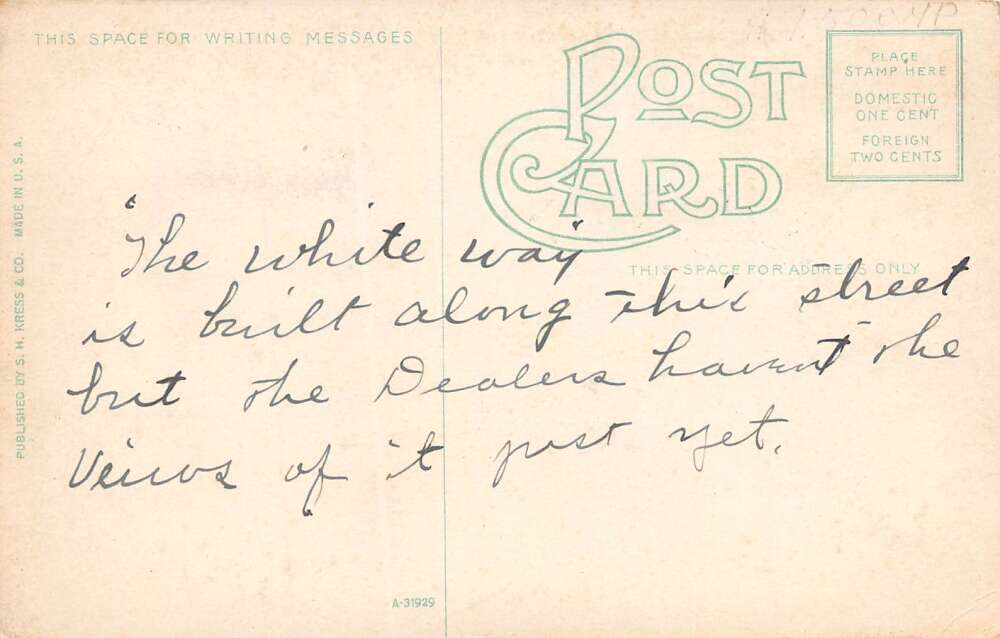 THIS SPACE FOR WRITING MESSAGES
POST
CARD
PLACE
STAMP HERE
DOMESTIC
ONE CENT
FOREIGN
TWO CENTS
THIS SPACE FOR ADDRESS ONLY
PUBLISHED BY S. H. KRESS & CO. MADE IN U. S. A.
"The white way"
is built along this street
but the Dealers havent the
Veiws of it just yet.
A-31929